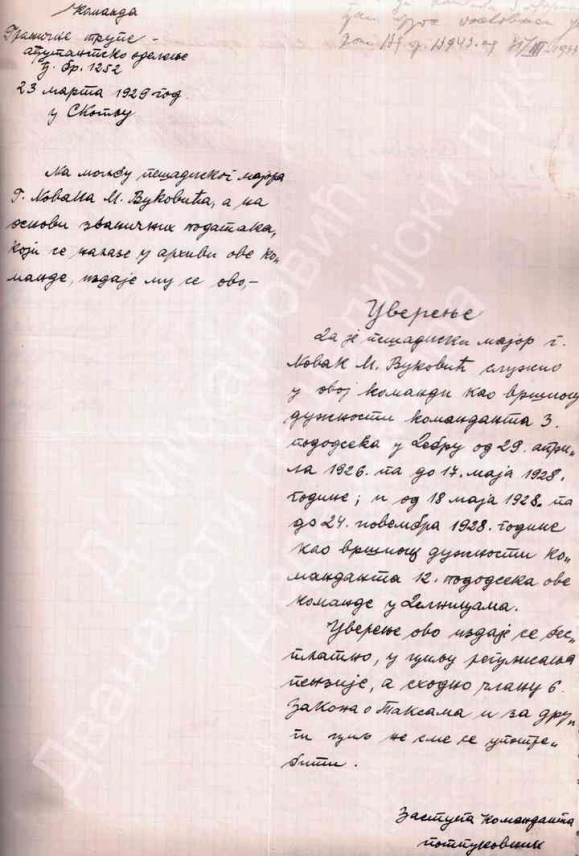 Команда
Граничне трупе -
ађутантско одељење
Ђ. бр. 1252
23 марта 1929 год.
у Скопљу
На молбу пешадиског мајора
Г. Новака М. Вуковића, а на
основи званичних података,
који се налазе у архиви ове ко„
манде, издаје му се ово,-
Уверење
Да је пешадиски мајор г.
Новак М. Вуковић служио
у овој команди као вршиоц
дужности команданта 3.
пододсека у Дебру од 29. апри„
ла 1926. па до 17. маја 1928.
године; и од 18 маја 1928. па
до 24. новембра 1928. године
као вршиоц дужности ко„
манданта 12. пододсека ове
команде у Делницама.
Уверење ово издаје се бес„
платно, у циљу регулисања
пензије, а сходно члану 6.
Закона о Таксама и за дру„
ги циљ не сме се употре„
бити.
Заступа команданта
потпуковник